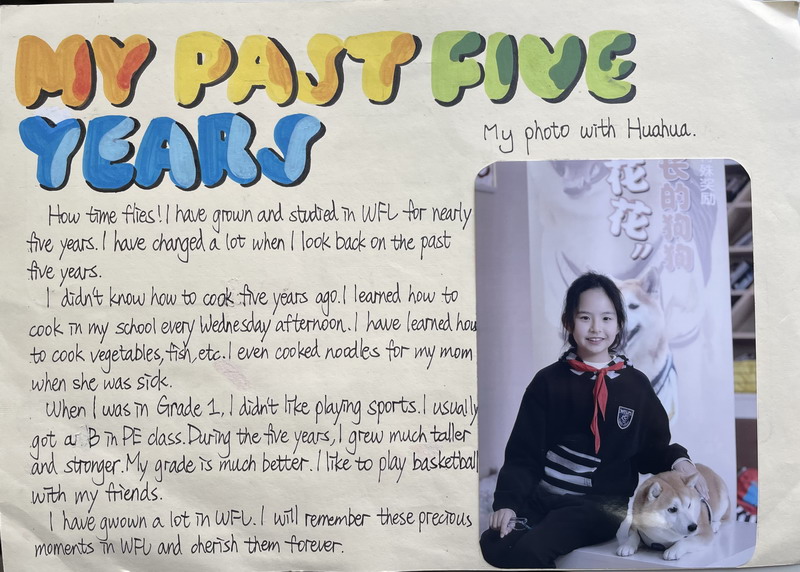 MY PAST FIVE
YEARS
My photo with Huahua.
How time flies! I have grown and studied in WFL for nearly
five years. I have changed a lot when I look back on the past
five years.
I didn't know how to cook five years ago. I learned how to
cook in my school every Wednesday afternoon. I have learned how
to cook vegetables, fish, etc. I even cooked noodles for my mom
when she was sick.
When I was in Grade 1, I didn't like playing sports. I usually
got a B in PE class. During the five years, I grew much taller
and stronger. My grade is much better. I like to play basketball
with my friends.
I have gwown a lot in WFL. I will remember these precious
moments in WFL and cherish them forever.
花花”
长的狗狗
殊奖励